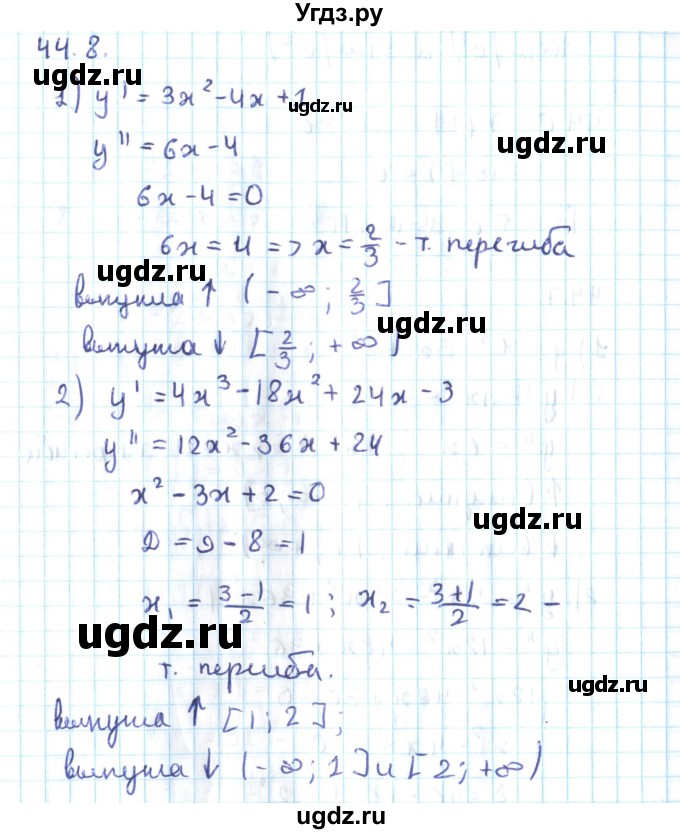 Угдз.ру
44.8.
ugdz.ru
1) y' = 3x² - 4x + 1
ugdz.ru
y'' = 6x - 4
ugdz.ru
6x - 4 = 0
6x = 4 => x = 2/3 - т. перегиба
ugdz.ru
выпукла ↑ (-∞; 2/3]
ugdz.ru
выпукла ↓ [2/3; +∞)
2) y' = 4x³ - 18x² + 24x - 3
y'' = 12x² - 36x + 24
x² - 3x + 2 = 0
ugdz.ru
D = 9 - 8 = 1
x₁ = (3-1)/2 = 1; x₂ = (3+1)/2 = 2 -
ugdz.ru
т. перегиба.
ugdz.ru
выпукла ↑ [1; 2];
выпукла ↓ (-∞; 1] и [2; +∞)
ugdz.ru